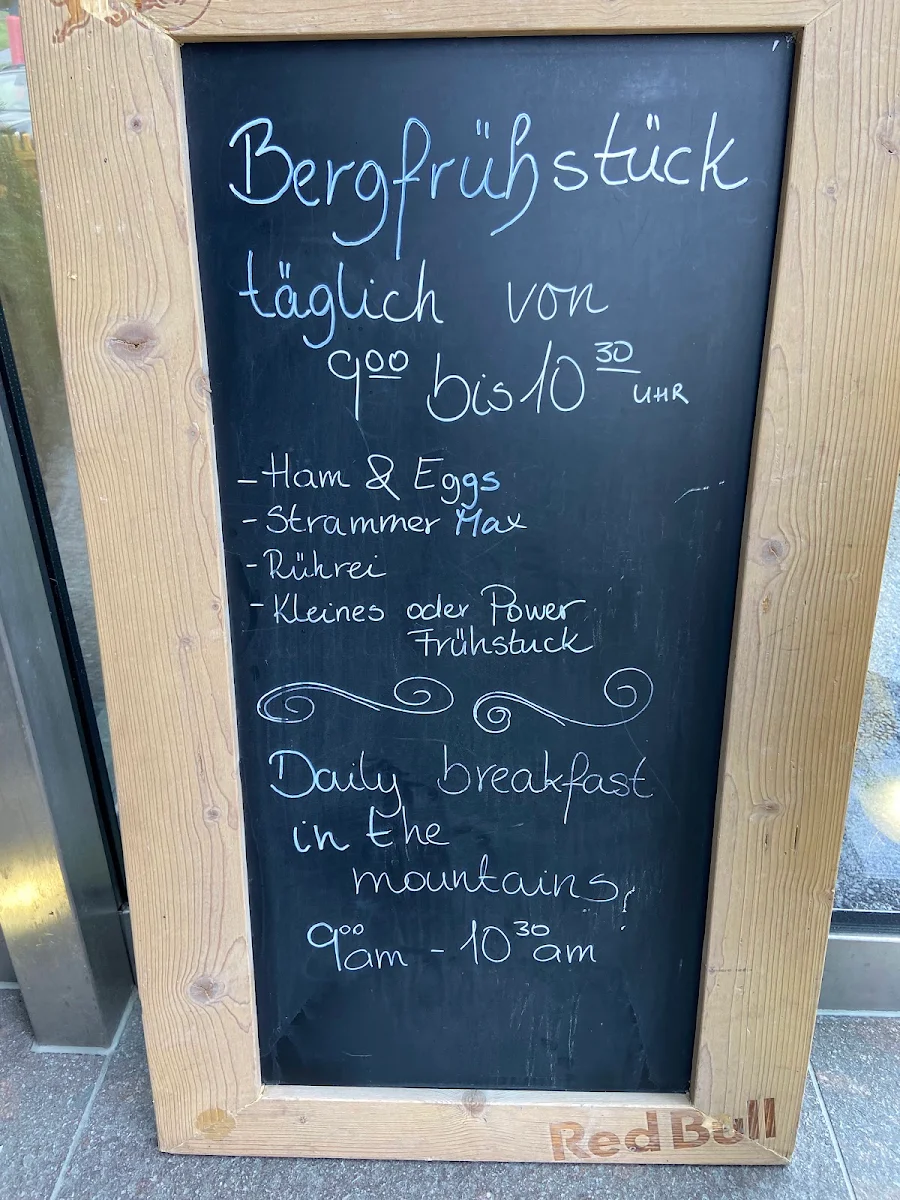 Bergfrühstück
täglich von
9⁰⁰ bis 10³⁰ UHR
- Ham & Eggs
- Strammer Max
- Rührei
- Kleines oder Power
Frühstuck
Daily breakfast
in the
mountains,
9⁰⁰am - 10³⁰am
Red Bull